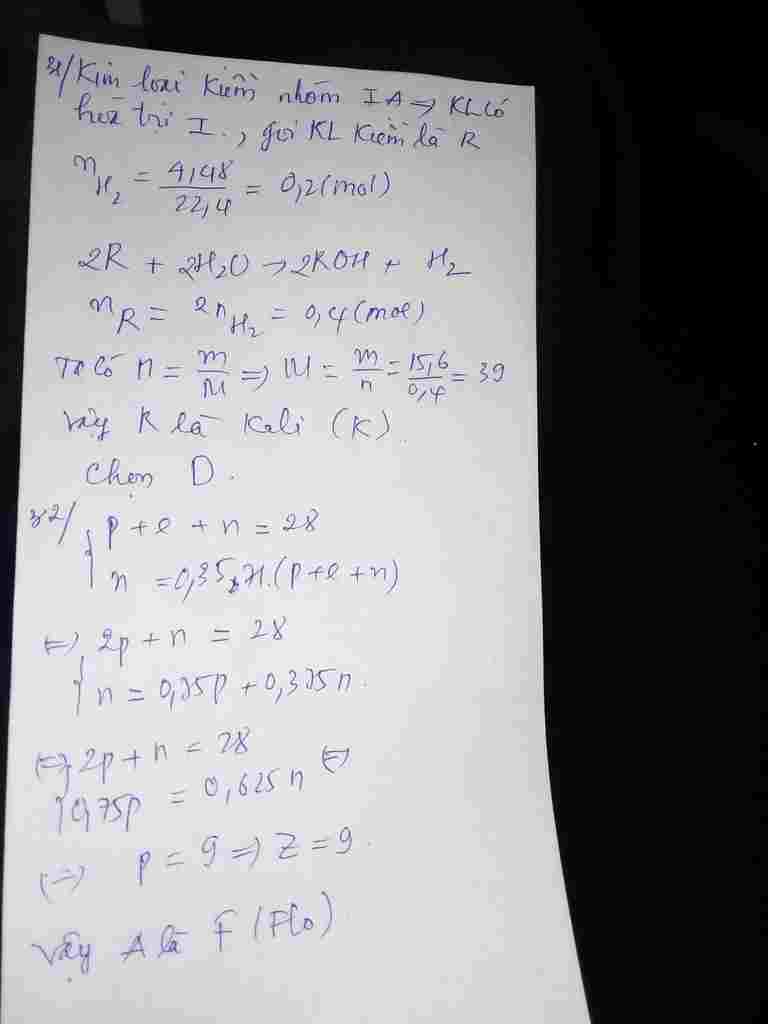 31/ Kim loại kiềm nhóm IA → KL có
hoá trị I., gọi KL kiềm là R
n H₂ = 4,48 / 22,4 = 0,2 (mol)
2R + 2H₂O → 2ROH + H₂
n R = 2n H₂ = 0,4 (mol)
Ta có n = m / M => M = m / n = 15,6 / 0,4 = 39
Vậy R là Kali (K)
Chọn D.
32/ { p + e + n = 28
n = 0,35 71.(p+e+n)
<=> { 2p + n = 28
n = 0,75p + 0,375n.
<=> { 2p + n = 28
0,75p = 0,625n <=>
<=> p = 9 => Z = 9.
Vậy A là F (Flo)